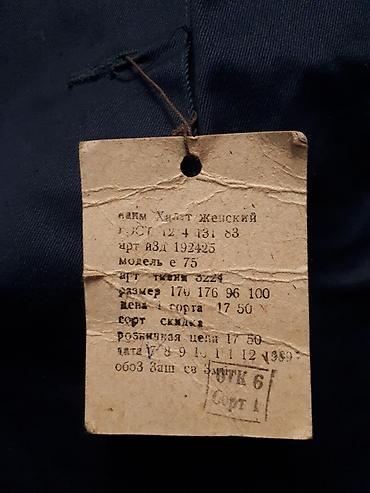 наим Халат женский
ГОСТ 12 4 131 83
арт изд 192425
модель е 75
арт ткани 3224
размер 170 176 96 100
цена 1 сорта 17 50
сорт скидка
розничная цена 17 50
дата 7 8 9 10 11 12 1989
обоз Защ св ЗМиПн
ОТК 6
Сорт 1